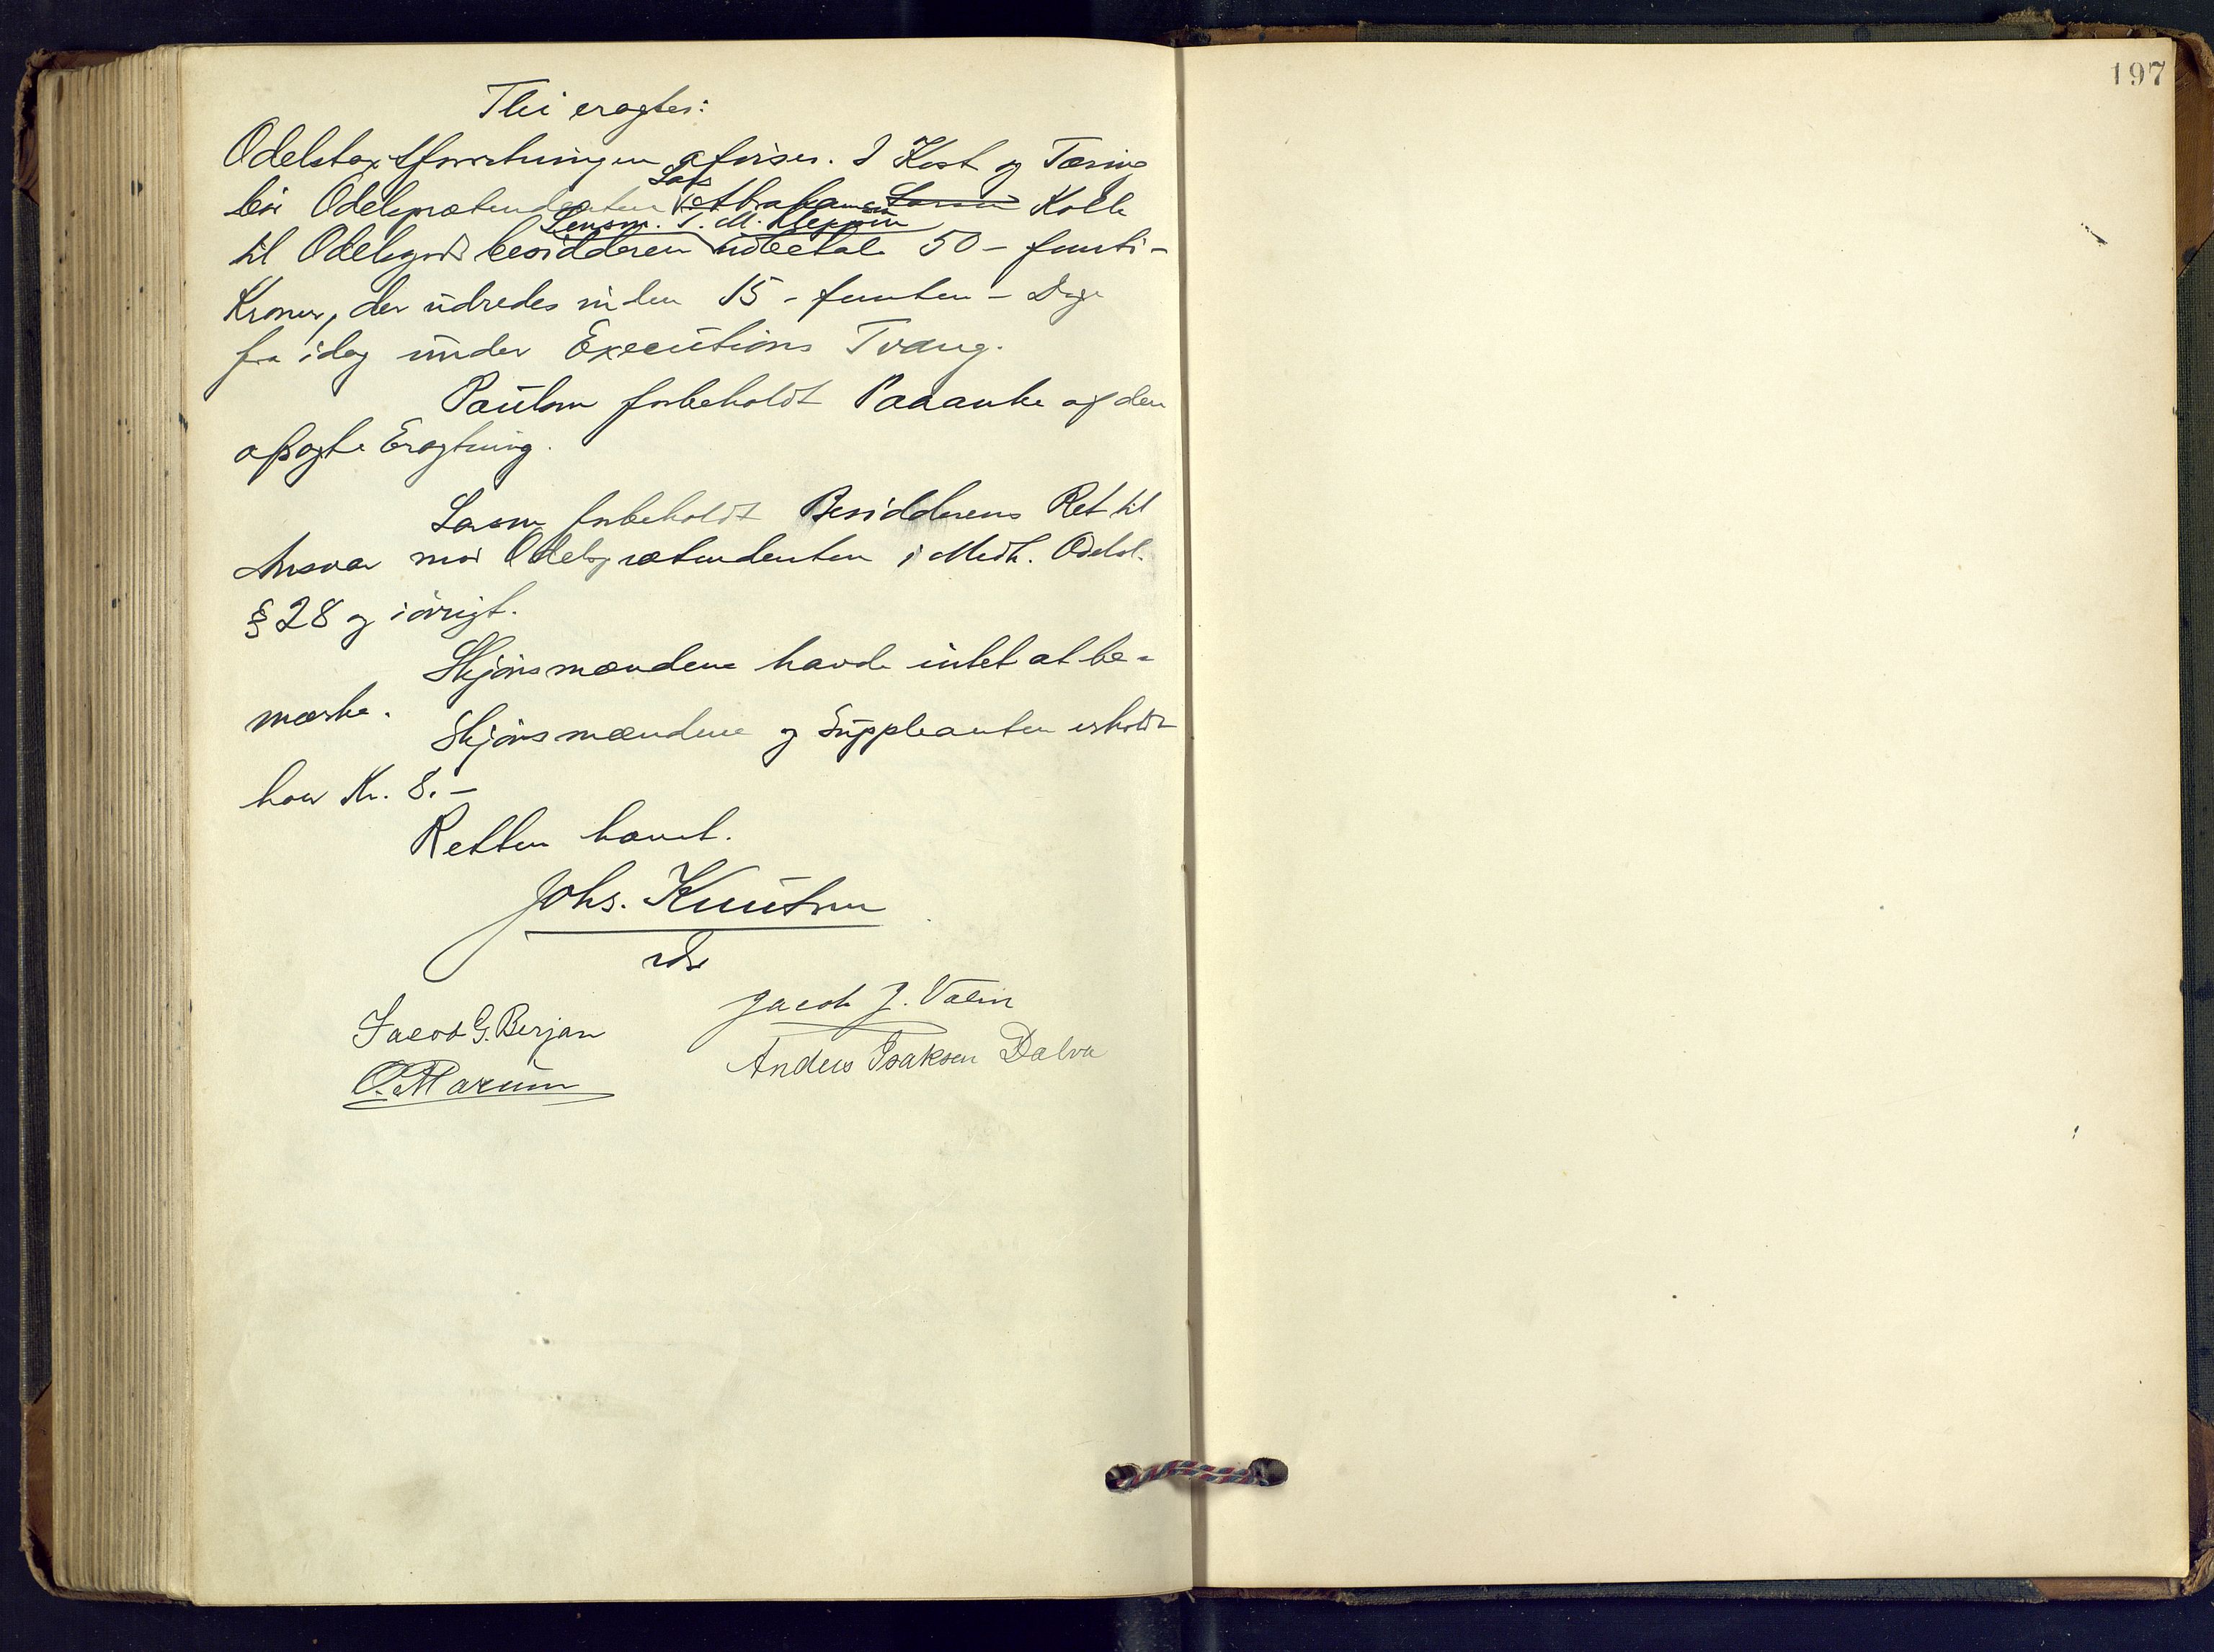 Thi eragtes:
Odelstaxtforretningen afvises. I Kost og Tæring
bør Odelsprætendenten Lars Abrahamsen Larsen Kolle
til Odelsgodsbesidderen Lensm. T. M. Kleppen udbetale 50 - femti -
Kroner, der udredes inden 15 - femten - Dage
fra idag under Executions Tvang.
Paulsen forbeholdt Paaanke af den
afsagte Eragtning.
Larsen forbeholdt Besidderens Ret til
Ansvar mod Odelsprætendenten i Medh. Odelsl.
§ 28 og iøvrigt.
Skjønsmændene havde intet at be-
mærke.
Skjønsmændene og Suppleanten erholdt
hver Kr. 8. -
Retten hævet.
Johs. Knutsen
Jacob J. Valen
Jacob G. Berjan
Anders Isaksen Dalva
O. Marum
197